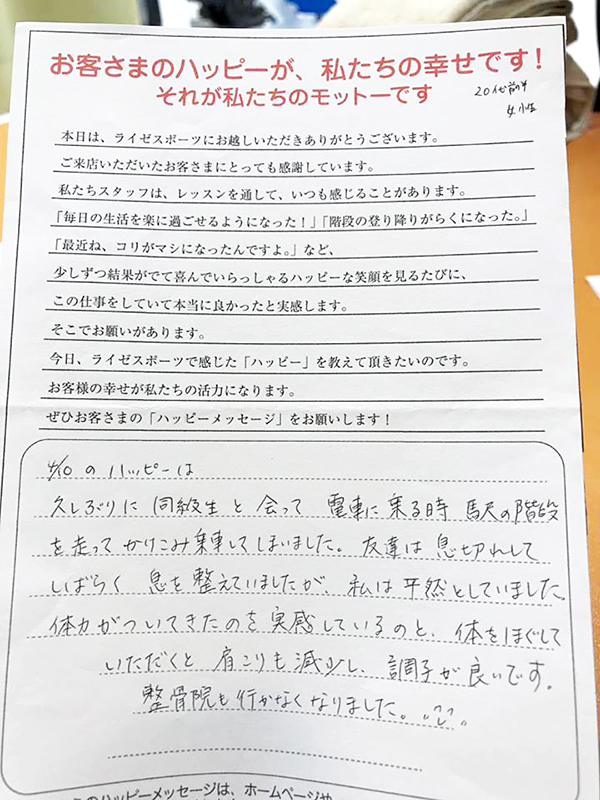 お客さまのハッピーが、私たちの幸せです！
それが私たちのモットーです
20代前半
女性
本日は、ライゼスポーツにお越しいただきありがとうございます。
ご来店いただいたお客さまにとっても感謝しています。
私たちスタッフは、レッスンを通して、いつも感じることがあります。
「毎日の生活を楽に過ごせるようになった！」「階段の登り降りがらくになった。」
「最近ね、コリがマシになったんですよ。」など、
少しずつ結果がでて喜んでいらっしゃるハッピーな笑顔を見るたびに、
この仕事をしていて本当に良かったと実感します。
そこでお願いがあります。
今日、ライゼスポーツで感じた「ハッピー」を教えて頂きたいのです。
お客様の幸せが私たちの活力になります。
ぜひお客さまの「ハッピーメッセージ」をお願いします！
4/10 の ハッピーは
久しぶりに 同級生と 会って 電車に乗る時 駅の階段
を走って かけこみ乗車してしまいました。友達は 息切れして
しばらく 息を整えていましたが、私は平然としていました。
体力がついてきたのを実感しているのと、体をほぐして
いただくと 肩こりも減少し、調子が良いです。
整骨院も行かなくなりました。
このハッピーメッセージは、ホームページや